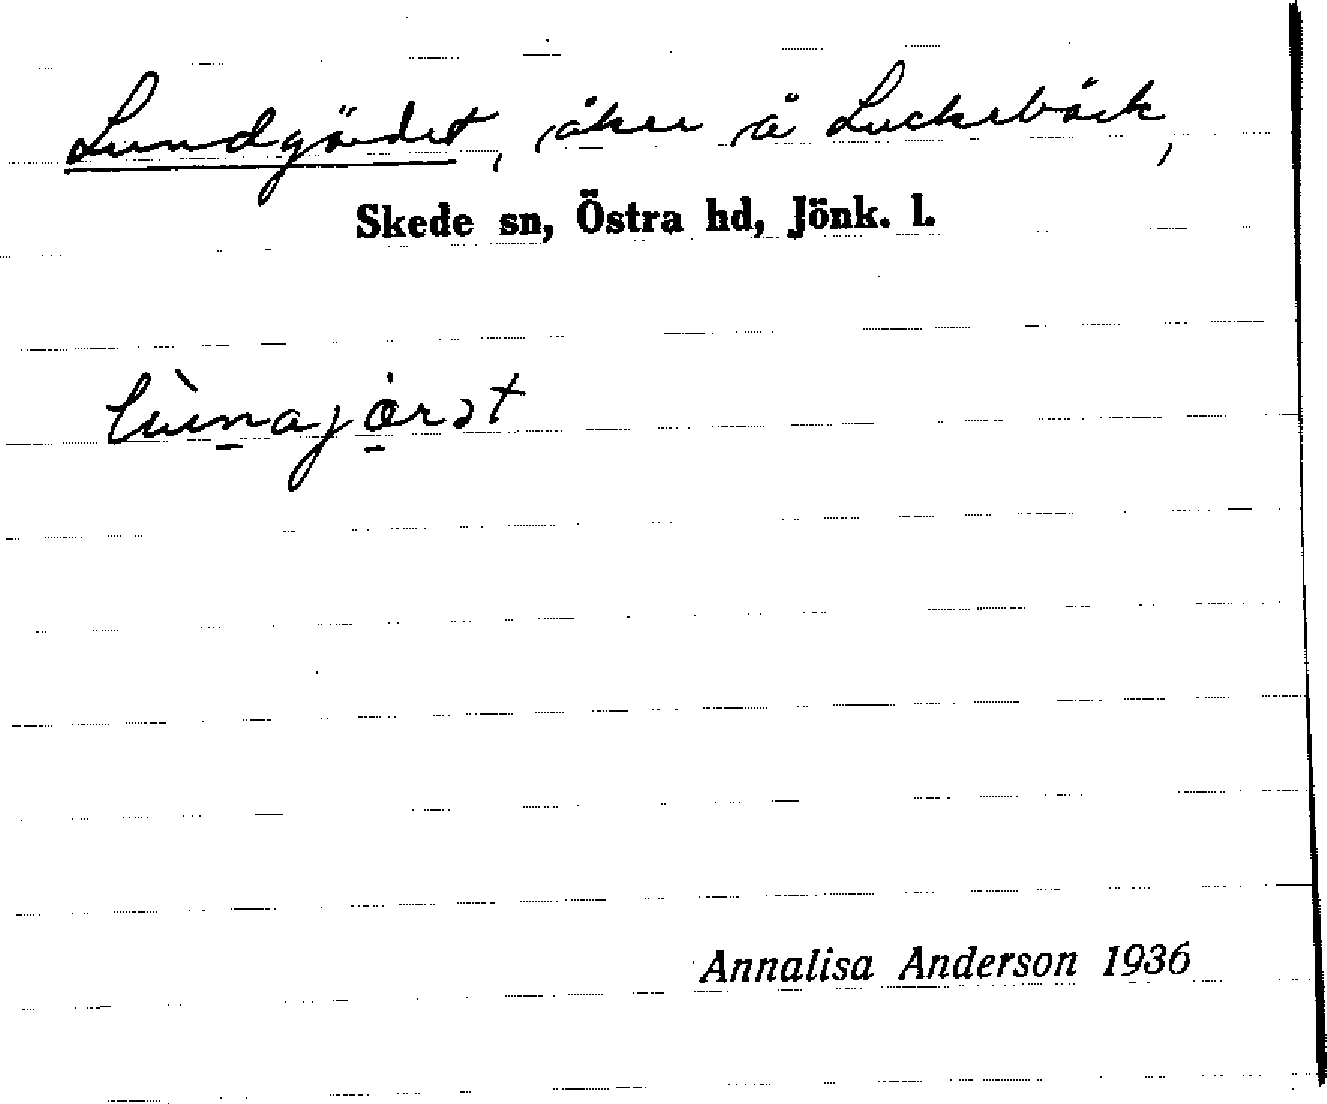 Lundgärdet, åker å Luckebäck,
Skede sn, Östra hd, Jönk. l.
Annalisa Anderson 1936